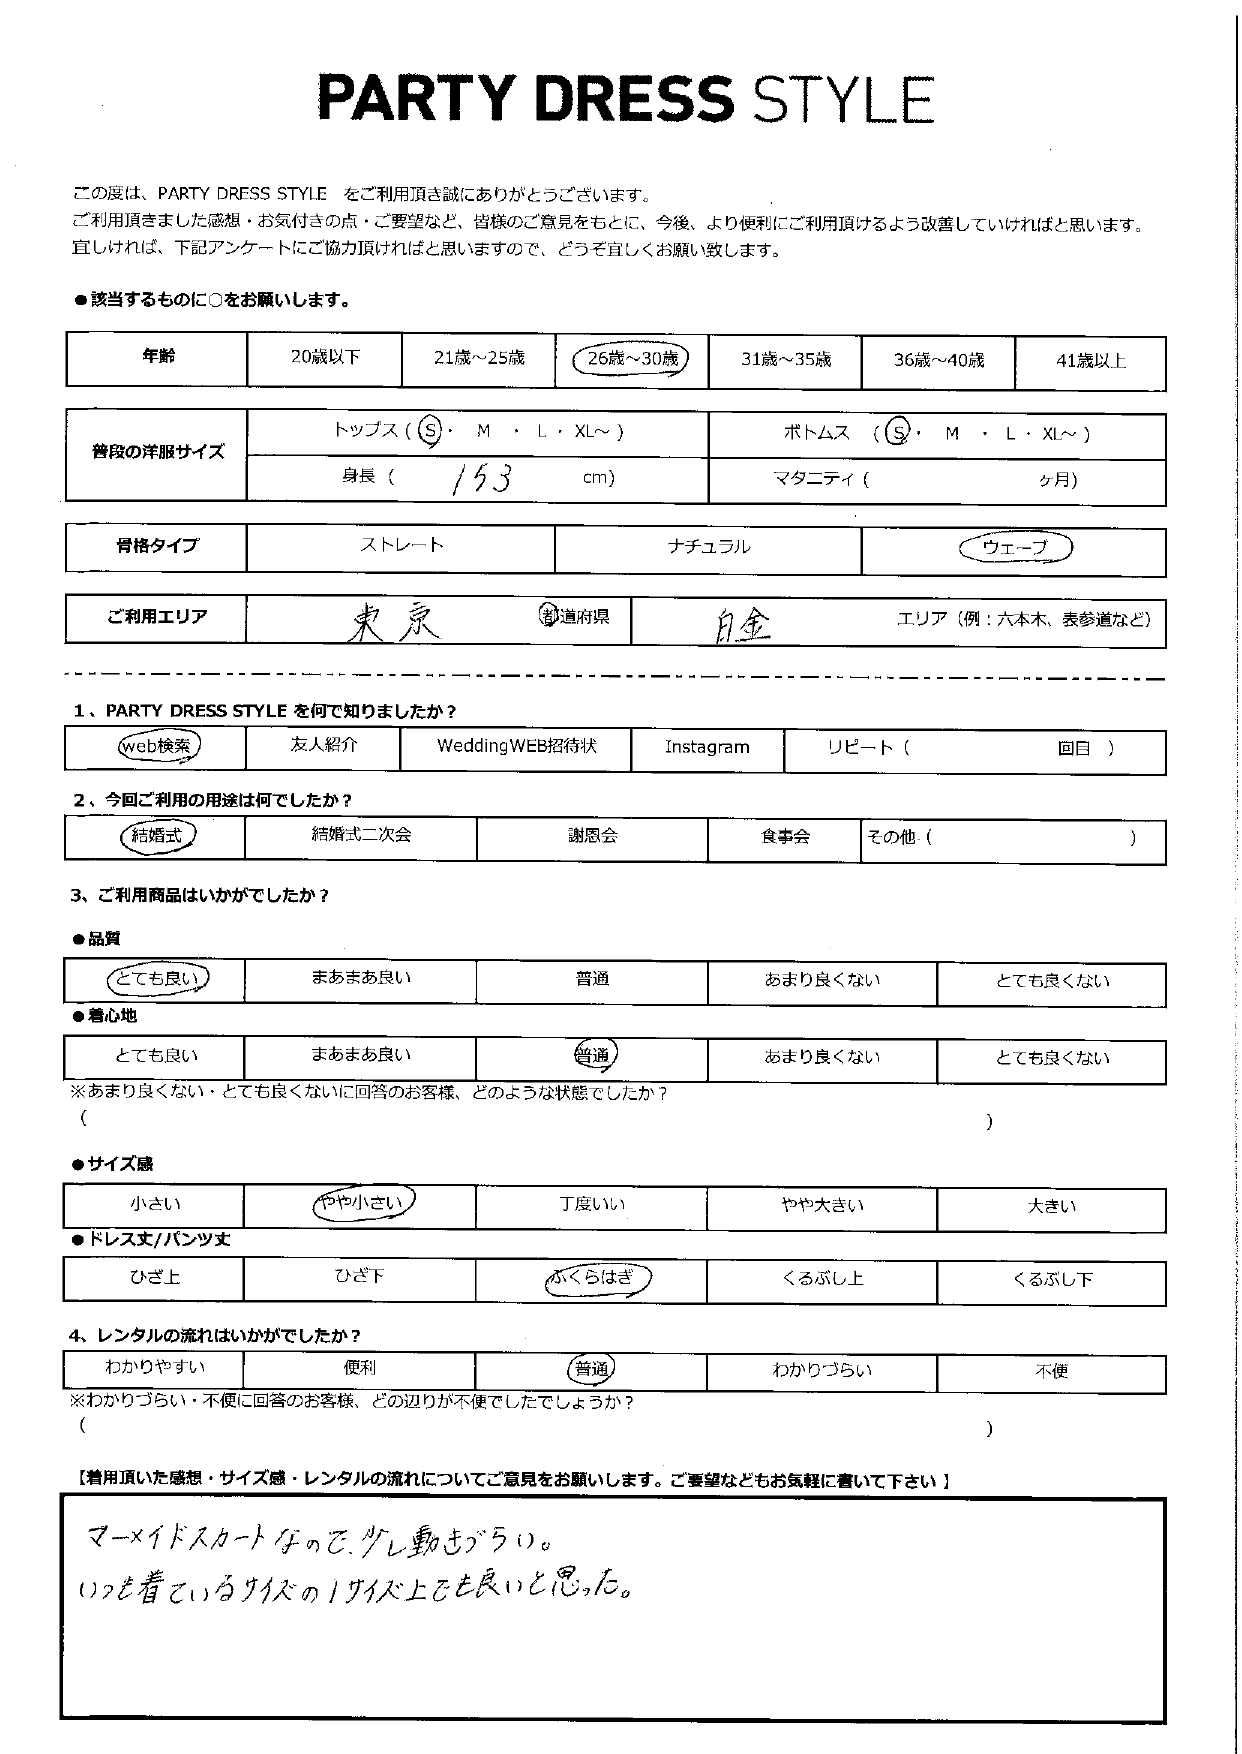 PARTY DRESS STYLE
この度は、PARTY DRESS STYLE をご利用頂き誠にありがとうございます。
ご利用頂きました感想・お気付きの点・ご要望など、皆様のご意見をもとに、今後、より便利にご利用頂けるよう改善していければと思います。
宜しければ、下記アンケートにご協力頂ければと思いますので、どうぞ宜しくお願い致します。
●該当するものに○をお願いします。
年齢 20歳以下 21歳～25歳 26歳～30歳 31歳～35歳 36歳～40歳 41歳以上
普段の洋服サイズ トップス ( S ・ M ・ L ・ XL～ ) ボトムス ( S ・ M ・ L ・ XL～ )
身長 ( 153 cm) マタニティ ( ヶ月)
骨格タイプ ストレート ナチュラル ウェーブ
ご利用エリア 東京 都道府県 白金 エリア（例：六本木、表参道など）
1、PARTY DRESS STYLE を何で知りましたか？
web検索 友人紹介 WeddingWEB招待状 Instagram リピート ( 回目 )
2、今回ご利用の用途は何でしたか？
結婚式 結婚式二次会 謝恩会 食事会 その他 ( )
3、ご利用商品はいかがでしたか？
●品質
とても良い まあまあ良い 普通 あまり良くない とても良くない
●着心地
とても良い まあまあ良い 普通 あまり良くない とても良くない
※あまり良くない・とても良くないに回答のお客様、どのような状態でしたか？
( )
●サイズ感
小さい やや小さい 丁度いい やや大きい 大きい
●ドレス丈/パンツ丈
ひざ上 ひざ下 ふくらはぎ くるぶし上 くるぶし下
4、レンタルの流れはいかがでしたか？
わかりやすい 便利 普通 わかりづらい 不便
※わかりづらい・不便に回答のお客様、どの辺りが不便でしたでしょうか？
( )
【着用頂いた感想・サイズ感・レンタルの流れについてご意見をお願いします。ご要望などもお気軽に書いて下さい】
マーメイドスカートなので、少し動きづらい。
いつも着ているサイズの1サイズ上でも良いと思った。